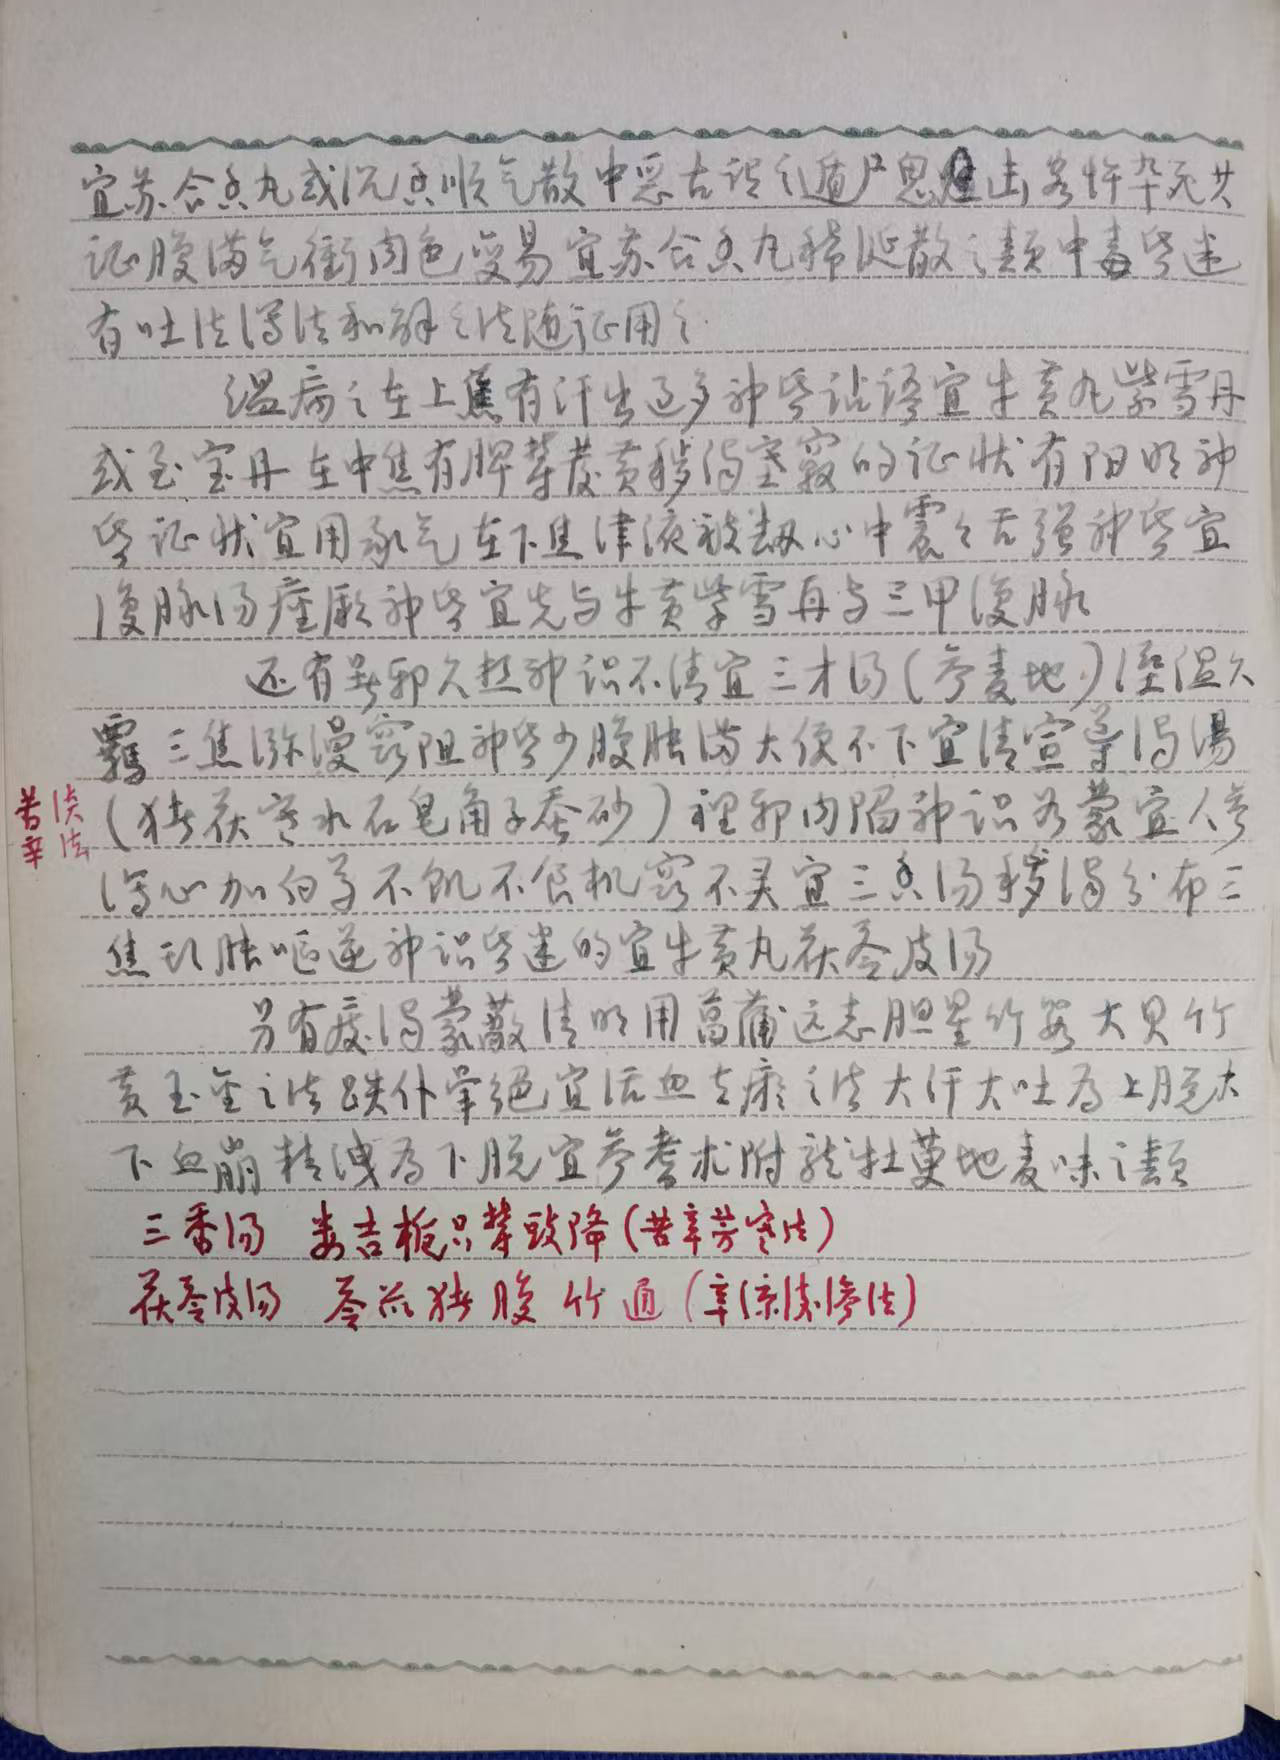 宜苏合香丸或沉香顺气散中恶古说之遁尸鬼击客忤卒死其
证腹满气冲面色变易宜苏合香丸稀涎散之类中毒昏迷
有吐法泻法和解之法随证用之
温病之在上焦有汗出过多神昏谵语宜牛黄丸紫雪丹
或至宝丹在中焦有脾瘅发黄秽浊塞窍的证状有阳明神
昏证状宜用承气在下焦津液被劫心中震震舌强神昏宜
復脉汤痉厥神昏宜先与牛黄紫雪再与三甲復脉
还有暑邪久热神识不清宜三才汤(参麦地)湿温久
羁三焦弥漫窍阻神昏少腹胀满大便不下宜清宣导浊湯
(猪茯寒水石皂角子蚕砂)裡邪内陷神识为蒙宜人参
泻心加白芍不饥不食机窍不灵宜三香汤秽浊分布三
焦 胀呕逆神识昏迷的宜牛黄丸茯苓皮汤
另有痰浊蒙蔽清明用菖蒲远志胆星竹茹大贝竹
黄玉金之法跌仆晕绝宜活血去瘀之法大汗大吐为上脱大
下血崩精洩为下脱宜参耆术附龙牡萸地麦味之类
苦辛淡法
三香汤 蒌吉栀只郁豉降(苦辛芳寒法)
茯苓皮汤 苓苡猪腹竹通(辛凉淡渗法)